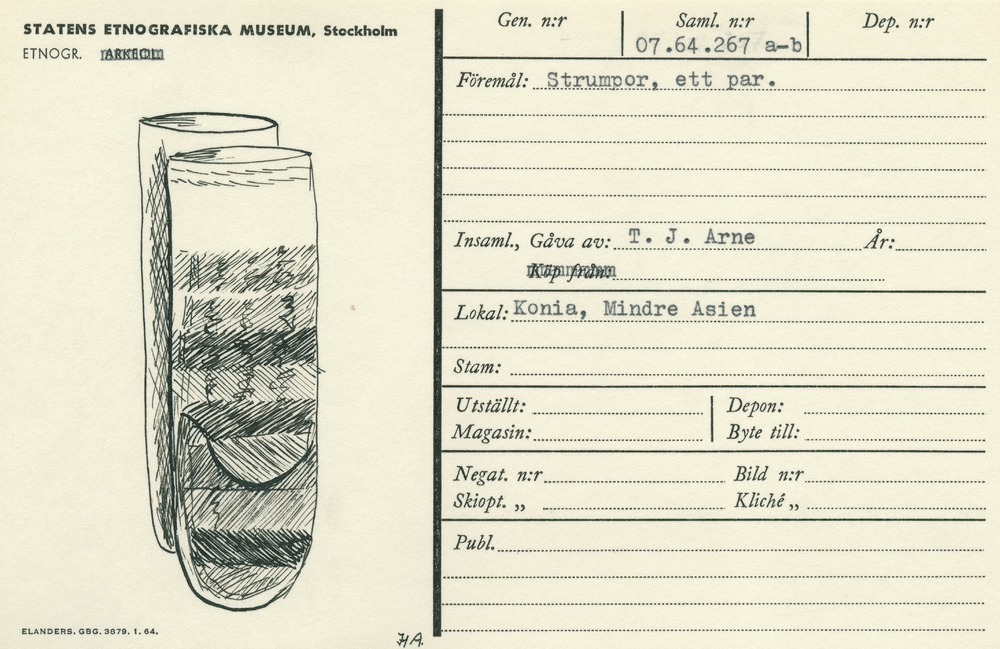 STATENS ETNOGRAFISKA MUSEUM, Stockholm
ETNOGR. ARKEOL.
Gen. n:r
Saml. n:r
07.64.267 a-b
Dep. n:r
Föremål: Strumpor, ett par.
Insaml., Gåva av: T. J. Arne År:
Köp från:
Lokal: Konia, Mindre Asien
Stam:
Utställt: Depon:
Magasin: Byte till:
Negat. n:r Bild n:r
Skiopt. „ Kliché „
Publ.
ELANDERS. GBG. 3879. 1. 64.
HA.